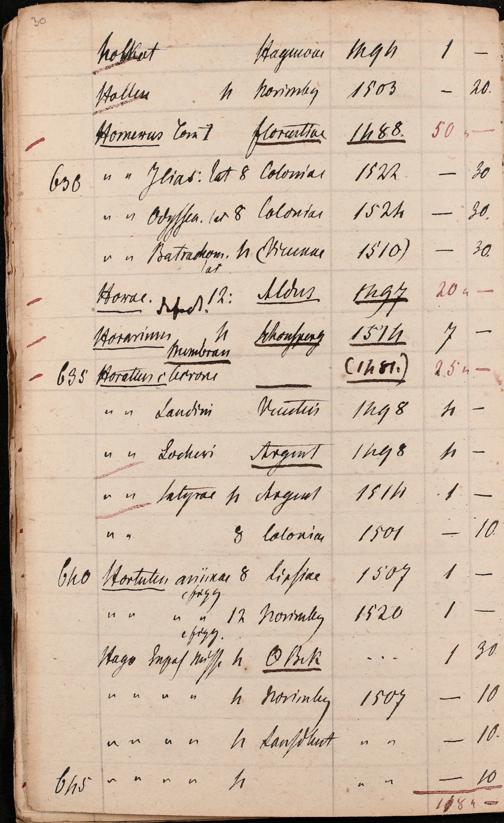 30
Holkot Hagenau 1494 1 —
Hallen 4 Norimbg 1503 — 20.
Homerus Tom I florentiae 1488. 50 „ —
630 " " Ilias: lat 8 Coloniae 1522 — 30
" " Odyssea. lat 8 Coloniae 1524 — 30.
" " Batrachom. lat 4 (Viennae 1510) — 30.
Horae. defect. 12: Aldus 1497 20 „ —
Horarium 4 Schonsperg 1514 7 —
Membran
635 Horatius c (1481.) 25 „ —
" " Landini Venetiis 1498 4 —
" " Locheri Argent 1498 4 —
" " Satyrae 4 Argent 1514 1 —
" " 8 Coloniae 1501 — 10.
640 Hortulus animae 8 Lipsiae 1507 1 —
c figg
" " " " 12 Norimbg 1520 1 —
c figg.
Hugo Expos Missae 4 ... 1 30
" " " " 4 Norimbg 1507 — 10
" " " " 4 Landshut " " — 10.
645 " " " " 4 " " — 10